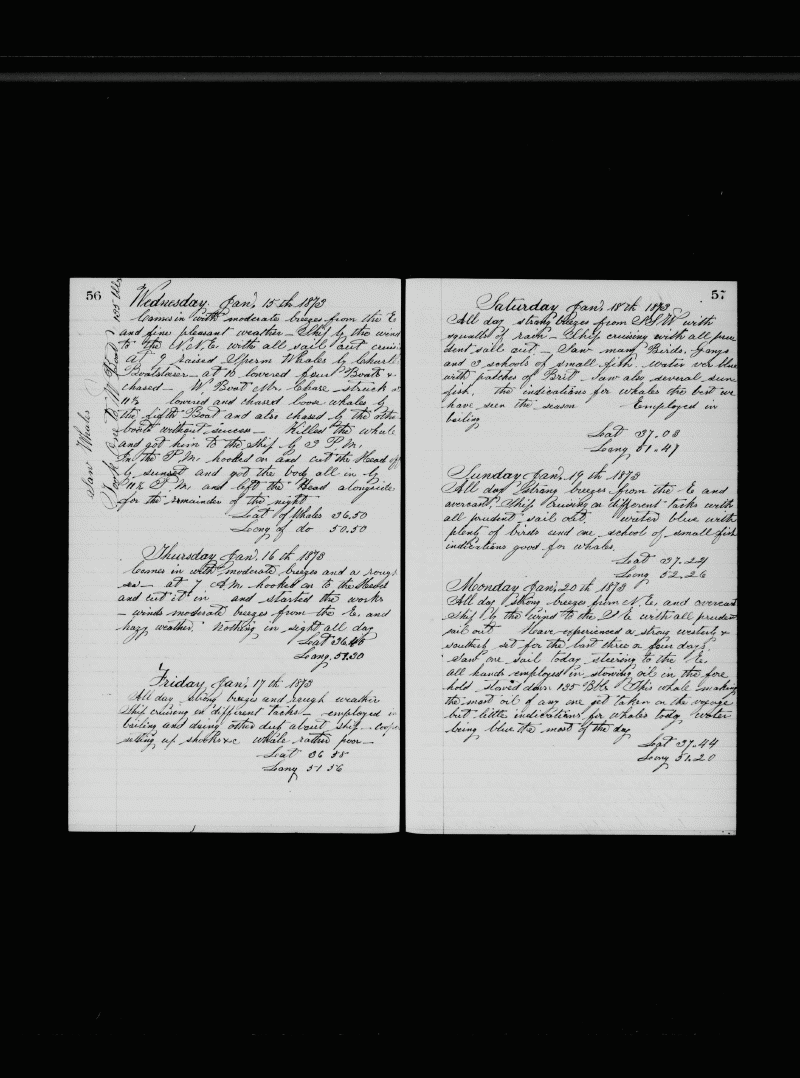 56
Saw Whales
Wednesday Jan'. 15th 1873
Comes in with moderate breezes from the E
and fine pleasant weather — Ship by the wind
to the N.N.E. with all sail out cruis
At 9 raised Sperm Whales by
Boatsteerer — at 10 lowered four Boats &
chased — W Boat Mr. Chase struck
11½ lowered and chased loose whales by
the fifth Boat and also chased by the other
boats without success — Killed the whale
and got him to the ship by 3 P.M.
In the P.M. hooked on and cut the Head off
by sunset and got the body all in by
11½ P.M. and left the Head alongside
for the remainder of the night
Lat of Whales 36.50
Long of do 50.50
Thursday Jan'. 16th 1873
Comes in with moderate breezes and a rough
sea — at 7 A.M. hooked on to the Head
and cut it in and started the works
— winds moderate breezes from the E. and
hazy weather. Nothing in sight all day
Lat 36.46
Long. 51.30
Friday Jan'. 17th 1873
All day strong breezes and rough weather
Ship cruising on different tacks — employed in
boiling and doing other dup about ship — Coop
setting up shooks &c whale rather poor —
Lat 36 58
Long 51 56
57
Saturday Jan'. 18th 1873
All day strong breezes from S.S.W with
squalls of rain — Ship cruising with all pru
dent sail out — Saw many Birds,
and 3 schools of small fish water blue
with patches of Brit — Saw also several sun
fish, the indications for whales the best we
have seen the season Employed in
boiling
Lat 37.03
Long 51.47
Sunday Jan'. 19th 1873
All day Strong breezes from the E and
overcast, Ship cruising on different tacks with
all prudent sail out. water blue with
plenty of birds and one school of small fish
indications good for whales.
Lat 37.24
Long 52.26
Monday Jan'. 20th 1873
All day strong breezes from N.E. and overcast
Ship by the wind to the S E with all prudent
sail out Have experienced a strong westerly &
southerly set for the last three or four days.
Saw one sail today steering to the E.
all hands employed in stowing oil in the fore
hold stowed down 135 Bbls This whale making
the most oil of any one yet taken on the voyage
but little indications for whales today water
being blue the most of the day
Lat 37.44
Long 51.20